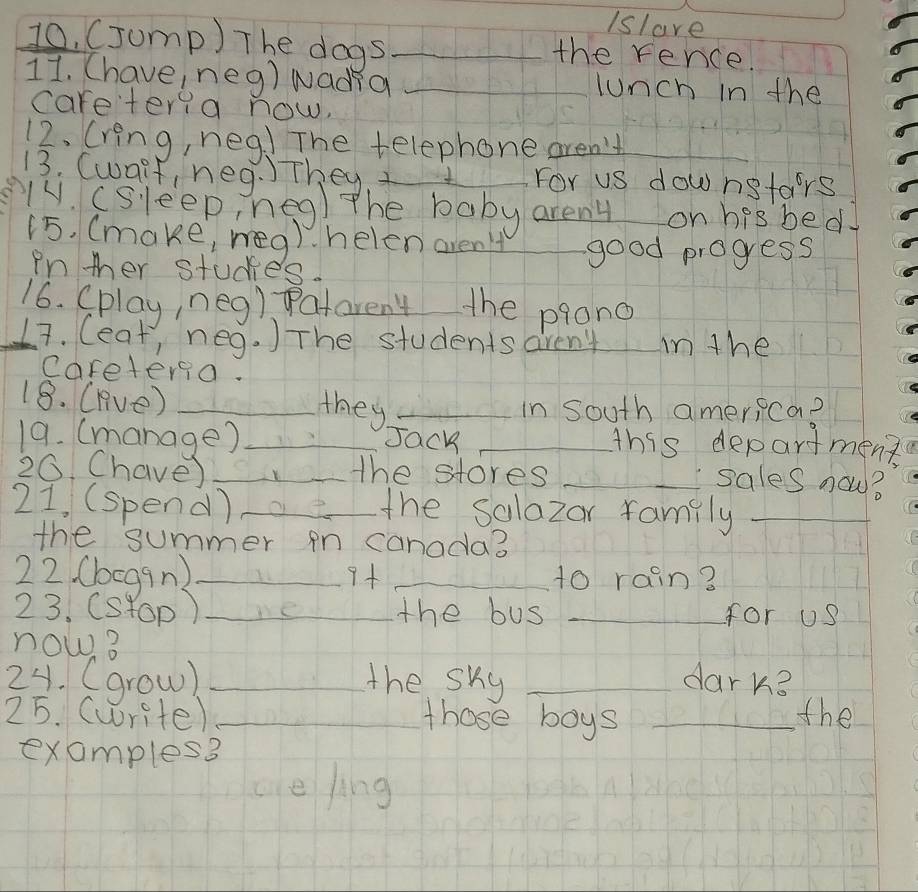 Islare
10. (Jump) The dogs ______ the fence.
11. (have, neg) Nadia ______ lunch in the
cafeteria now.
12. (ring, neg) The telephone aren't ______
13. (wait, neg.) They ______ For us downstairs
14. (Sleep, neg) The baby aren't ______ on his bed.
15. (make, neg). helen aren't ______ good progess
in ther studies.
16. (play, neg) Pat aren't ______ the piano
17. (eat, neg.) The students aren't ______ in the
Cafeteria.
18. (live) ______ they ______ in south america?
19. (manage) ______ Jack ______ this department
20. (have) ______ the stores ______ sales now?
21. (spend) ______ the Salazar family ______
the summer in canada?
22. (began) ______ it ______ to rain?
23. (stop) ______ the bus ______ for us
now?
24. (grow) ______ the sky ______ dark?
25. (write) ______ those boys ______ the
examples?